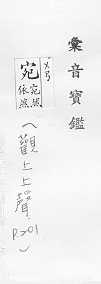 彙音寶鑑
ㄨㄢˇ
宛
宛然
依然
（觀上上聲
P.201
）